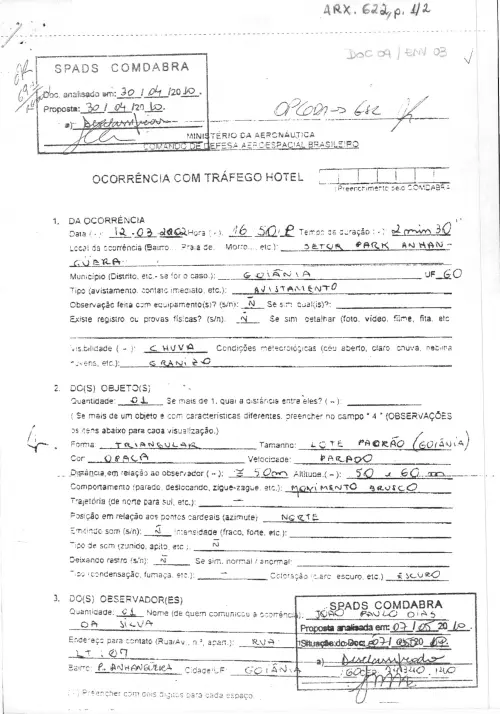 ARX. 622, p. 1/2
DOC 09 / ENV 03
SPADS COMDABRA
Doc. analisado em: 30 / 04 /20 10.
Proposta: 30 / 04 /20 10.
a) Desclassificar
MINISTÉRIO DA AERONÁUTICA
COMANDO DE DEFESA AEROESPACIAL BRASILEIRO
OCORRÊNCIA COM TRÁFEGO HOTEL
(Preenchimento pelo COMDABRA
1. DA OCORRÊNCIA
Data (-): 12.03.2002 Hora (-): 16 50 P Tempo de duração (-): 2 min 30"
Local da ocorrência (Bairro... Praia de... Morro..., etc.): SETOR PARK ANHAN-
GUERA
Município (Distrito, etc.- se for o caso.): GOIÂNIA UF GO
Tipo (avistamento, contato imediato, etc.): AVISTAMENTO
Observação feita com equipamento(s)? (s/n): N Se sim, qual(is)?:
Existe registro ou provas físicas? (s/n): N Se sim detalhar (foto, vídeo, filme, fita, etc
Visibilidade ( - ): CHUVA Condições meteorológicas (céu aberto, claro, chuva, neblina
nuvens, etc.): GRANIZO
2. DO(S) OBJETO(S)
Quantidade: 01 Se mais de 1, qual a distância entre eles? ( - ):
( Se mais de um objeto e com características diferentes, preencher no campo " 4 " (OBSERVAÇÕES
os itens abaixo para cada visualização.)
Forma: TRIANGULAR Tamanho: LOTE PADRÃO (GOIÂNIA)
Cor: OPACA Velocidade: PARADO
Distância em relação ao observador ( - ): 50m Altitude ( - ): 50 a 60 m
Comportamento (parado, deslocando, zigue-zague, etc.): MOVIMENTO BRUSCO
Trajetória (de norte para sul, etc.):
Posição em relação aos pontos cardeais (azimute): NORTE
Emitindo som (s/n): N Intensidade (fraco, forte, etc.):
Tipo de som (zunido, apito, etc.): N
Deixando rastro (s/n): N Se sim, normal / anormal:
Tipo (condensação, fumaça, etc.): - Coloração (claro, escuro, etc.) ESCURO
3. DO(S) OBSERVADOR(ES)
Quantidade: 01 Nome (de quem comunicou a ocorrência): JOÃO PAULO DIAS
DA SILVA
Endereço para contato (Rua/Av., n.º, apart.): RUA
LT: 07
Bairro: P. ANHANGUERA Cidade/UF: GOIÂNIA
SPADS COMDABRA
Proposta analisada em: 07 / 05 /20 10.
Situação do Doc
a) Desclassificado
( - ) Preencher com dois dígitos para cada espaço.